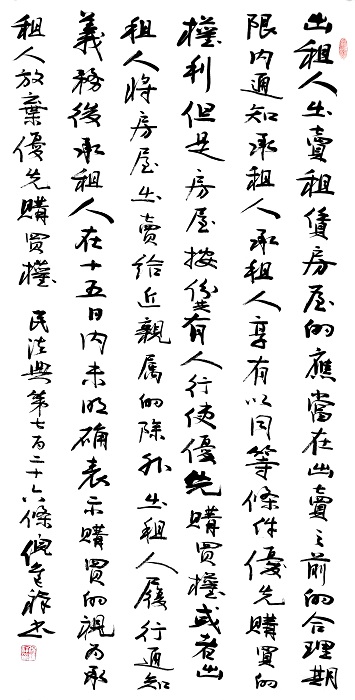 出租人出賣租賃房屋的應當在出賣之前的合理期
限内通知承租人承租人享有以同等條件優先購買的
權利但是房屋按份共有人行使優先購買權或者出
租人將房屋出賣給近親属的除外出租人履行通知
義務後承租人在十五日内未明確表示購買的視為承
租人放棄優先購買權 民法典第七百二十六條